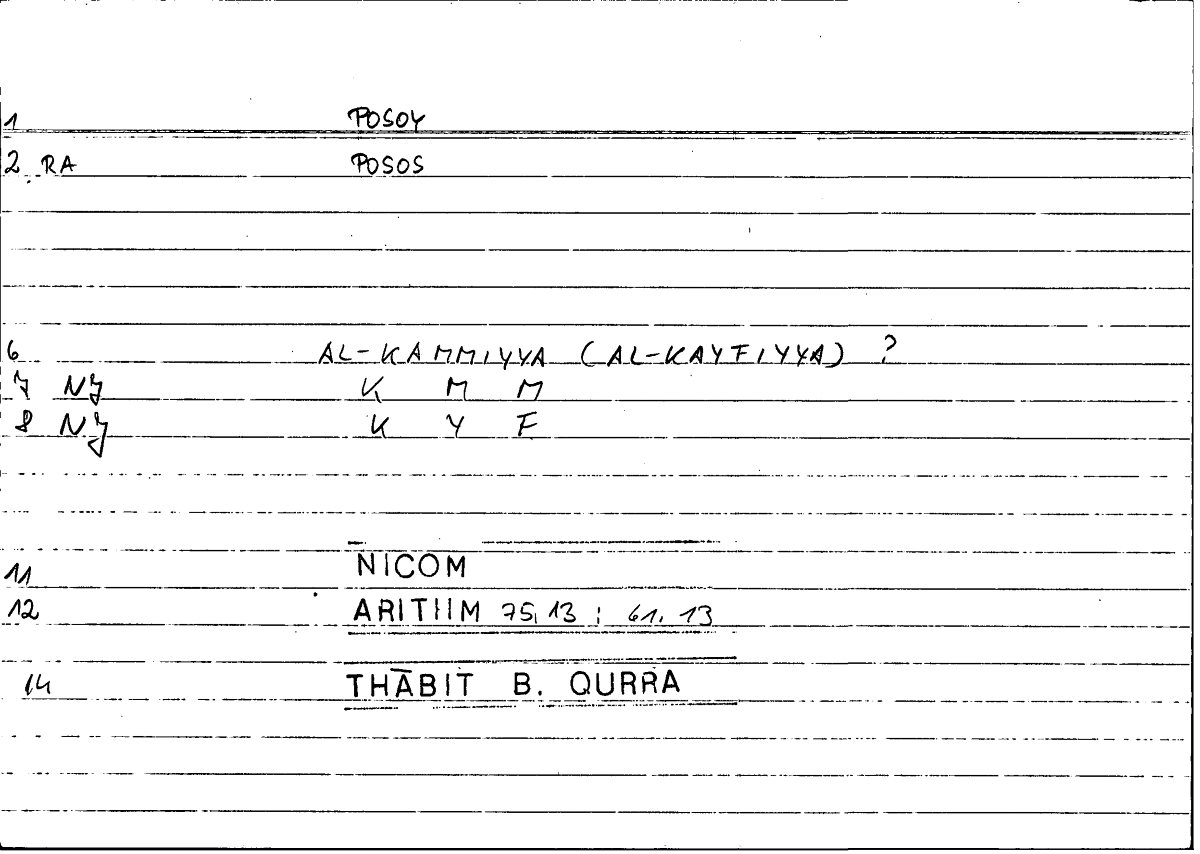 1 POSOY
2 RA POSOS
6 AL-KAMMIYYA (AL-KAYFIYYA) ?
7 NJ K M M
8 NJ K Y F
11 NICOM
12 ARITHM 75,13 ; 61,13
14 THĀBIT B. QURRA